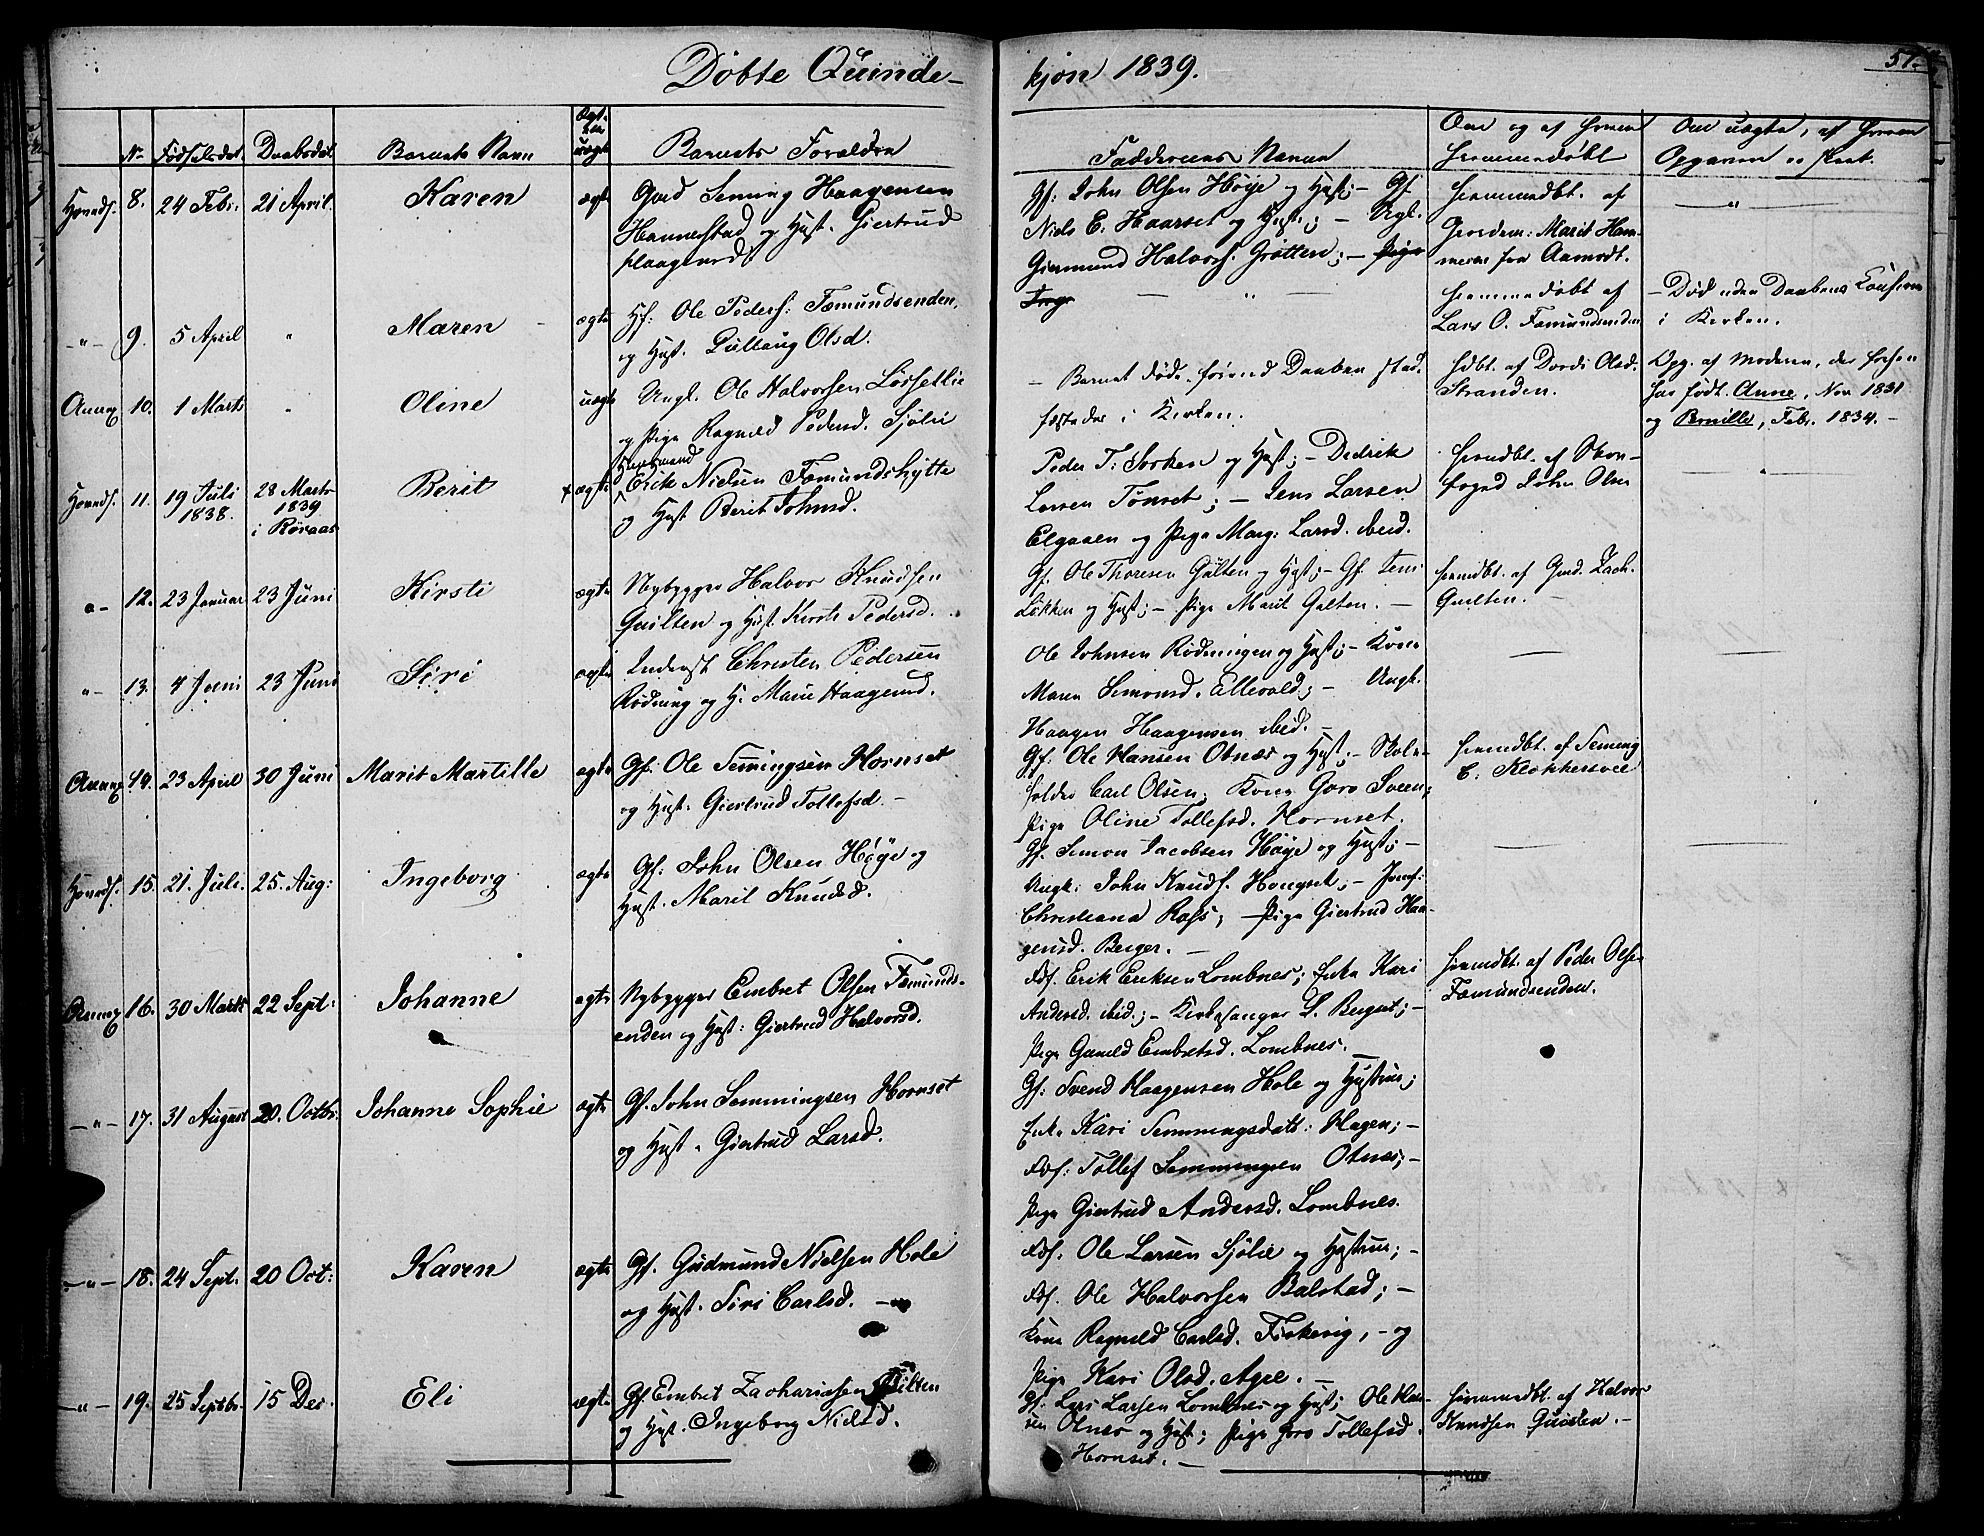 Döbte Quinde-
kjön 1839.
57.
No Födselsdat. Daabsdat. Barnets Navn ægte eller uægte Barnets Forældre
Faddernes Navne
Om og af hvem hjemmedøbt
Om uægte, af hvem Opgaven er skeet.
Hoveds. 8. 24 Febr. 21 April. Karen ægte Gaard Seming Haagensen
Hammerstad og Hust. Giertrud
Haagensd.
Gf: John Olsen Höye og Hust; - Gf.
Niels E. Haarset og Hust; - Ungk.
Giermund Halvors. Grötten; - Pige
Hjemmedbt. af
Jordem: Marit Ham-
meren fra Aamodt.
- " - 9. 5 April " Maren ægte Hf: Ole Peders: Fæmundsenden,
og Hust. Gullaug Olsd.
hjemmedöbt af
Lars O. Fæmundsenden
- Död uden Daabens
i Kirken.
Annex 10. 1 Marts " Oline uægte Ungk. Ole Halvorsen Lössetlie
og Pige Ragnild Pedersd. Sjölie
- Barnet döde förend Daaben stad-
fæstedes i Kirken.
hdbt. af Dordi Olsd.
Stranden.
Opg. af Moderen, der forhen
har födt Anne, Nov 1831
og Pernille, Febr. 1834. -
Hoveds. 11. 19 Juli 1838. 28 Marts 1839 i Röraas Berit ægte Erik Nielsen Fæmundshytte
og Hust Berit Johnsd.
Peder T: Sorken og Hust; - Dedrik
Larsen Tönset; - Jens Larsen
Elgaaen og Pige Marg: Larsd. ibid.
hjemdbt. af Skov-
foged John Olsen
- " - 12. 23 Januar 23 Juni Kirsti ægte Nybygger Halvor Knudsen
Quilten og Hust. Kirsti Pedersd.
Gf. Ole Thoresen Galten og Hust; - Gf. Jens
Løkken og Hust; - Pige Marit Galten. -
hjemdbt. af Gmd. Zach.
Quilten. -
- " - 13. 4 Juni 23 Juni Siri ægte Inderst Christen Pedersen
Rödning og H. Marie Haagensd.
Ole Johnsen Rödningen og Hust; - Kone
Maren Simonsd. Ellevold; - Ungk.
Haagen Haagensen ibid. -
Annex 14. 23 April 30 Juni Marit Martille ægte Gf. Ole Semingsen Hornset
og Hust. Giertrud Tollefsd. -
Gf. Ole Hansen Otnæs og Hust; - Skole-
holder Carl Olsen; Kone Goro Sveen;
Pige Oline Tollefsd. Hornset.
hjemdbt. af Seming
E. Klokkersvee
Hoveds. 15. 21. Juli. 25. Aug: Ingeborg ægte Gf: John Olsen Höye og
Hust. Marit Knudsd.
Gf. Simon Jacobsen Höye og Hust; -
Ungk: John Knuds. Hongset; - Jomf:
Christiana Rafs; - Pige Giertrud Haa-
gensd. Berger. -
Annex 16. 30 Marts 22 Sept: Johanne ægte Nybygger Embret Olsen Fæmunds-
enden og Hust: Giertrud Halvorsd.
Erik Eriksen Lombnes; Enke Kari
Andersd. ibid.; - Kirkesanger S. Bergset; -
Pige Gunild Embretsd. Lombnes. -
hjemdbt. af Peder Olsen
Fæmundsenden.
- " - 17. 31 August 20. Octbr: Johanne Sophie ægte Gf. John Semmingsen Hornset
og Hust. Giertrud Larsd.
Gf: Svend Haagensen Hole og Hustrue;
Enke Kari Semmingsdatt: Hagen; -
Tollef Semmingsen Otnæs; -
Pige Giertrud Andersd. Lombnes.
- " - 18. 24 Sept. 20 Oct: Karen ægte Gf. Gudmund Nielsen Hole
og Hust. Siri Carlsd. -
Ole Larsen Sjölie og Hustrue; -
Ole Halvorsen Balstad; -
Kone Ragnild Carlsd. Fiskevig, - og
Pige Kari Olsd. Agre. -
- " - 19. 25 Septbr. 15 Dec. Eli ægte Gf. Embret Zachariasen Quilten
og Hust. Ingeborg Nielsd.
Gf: Lars Larsen Lombnes og Hust; Ole Han-
sen Otnæs og Hust; Pige Goro Tollefsd.
Hornset. -
hjemmedbt. af Halvor
Knudsen Quilten. -